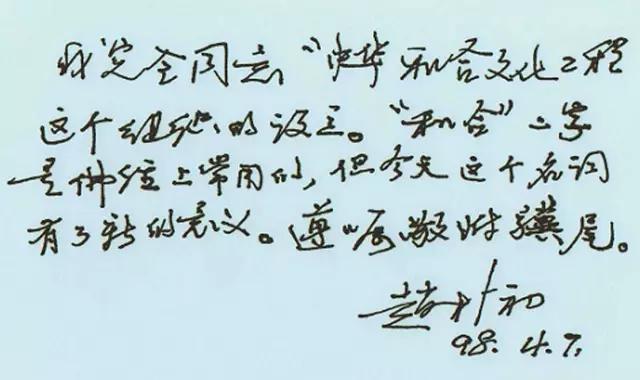 我完全同意“中华和合文化工程
这个组织的设立。“和合”二字
是佛经上常用的，但今天这个名词
有了新的意义。遵嘱敬附骥尾。
赵朴初
98.4.7.